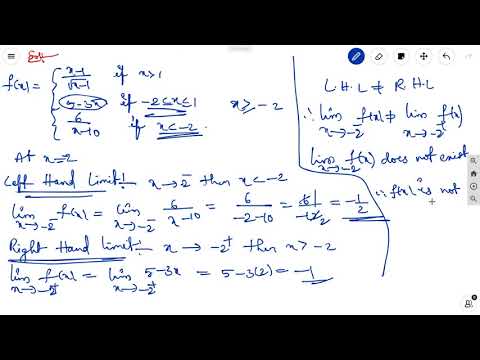 Sol:
f(x) = { x-1/√x-1 if x>1
5-3x if -2≤x≤1 x≥-2
6/x-10 if x<-2.
At x=-2
Left Hand Limit:- x→-2⁻ then x<-2
lim x→-2⁻ f(x) = lim x→-2⁻ 6/x-10 = 6/-2-10 = 6/-12 = -1/2
Right Hand Limit:- x→-2⁺ then x>-2
lim x→-2⁺ f(x) = lim x→-2⁺ 5-3x = 5-3(2) = -1
L.H.L ≠ R.H.L
∴ lim x→-2⁻ f(x) ≠ lim x→-2⁻ f(x)
lim x→-2 f(x) does not exist
∴ f(x) is not